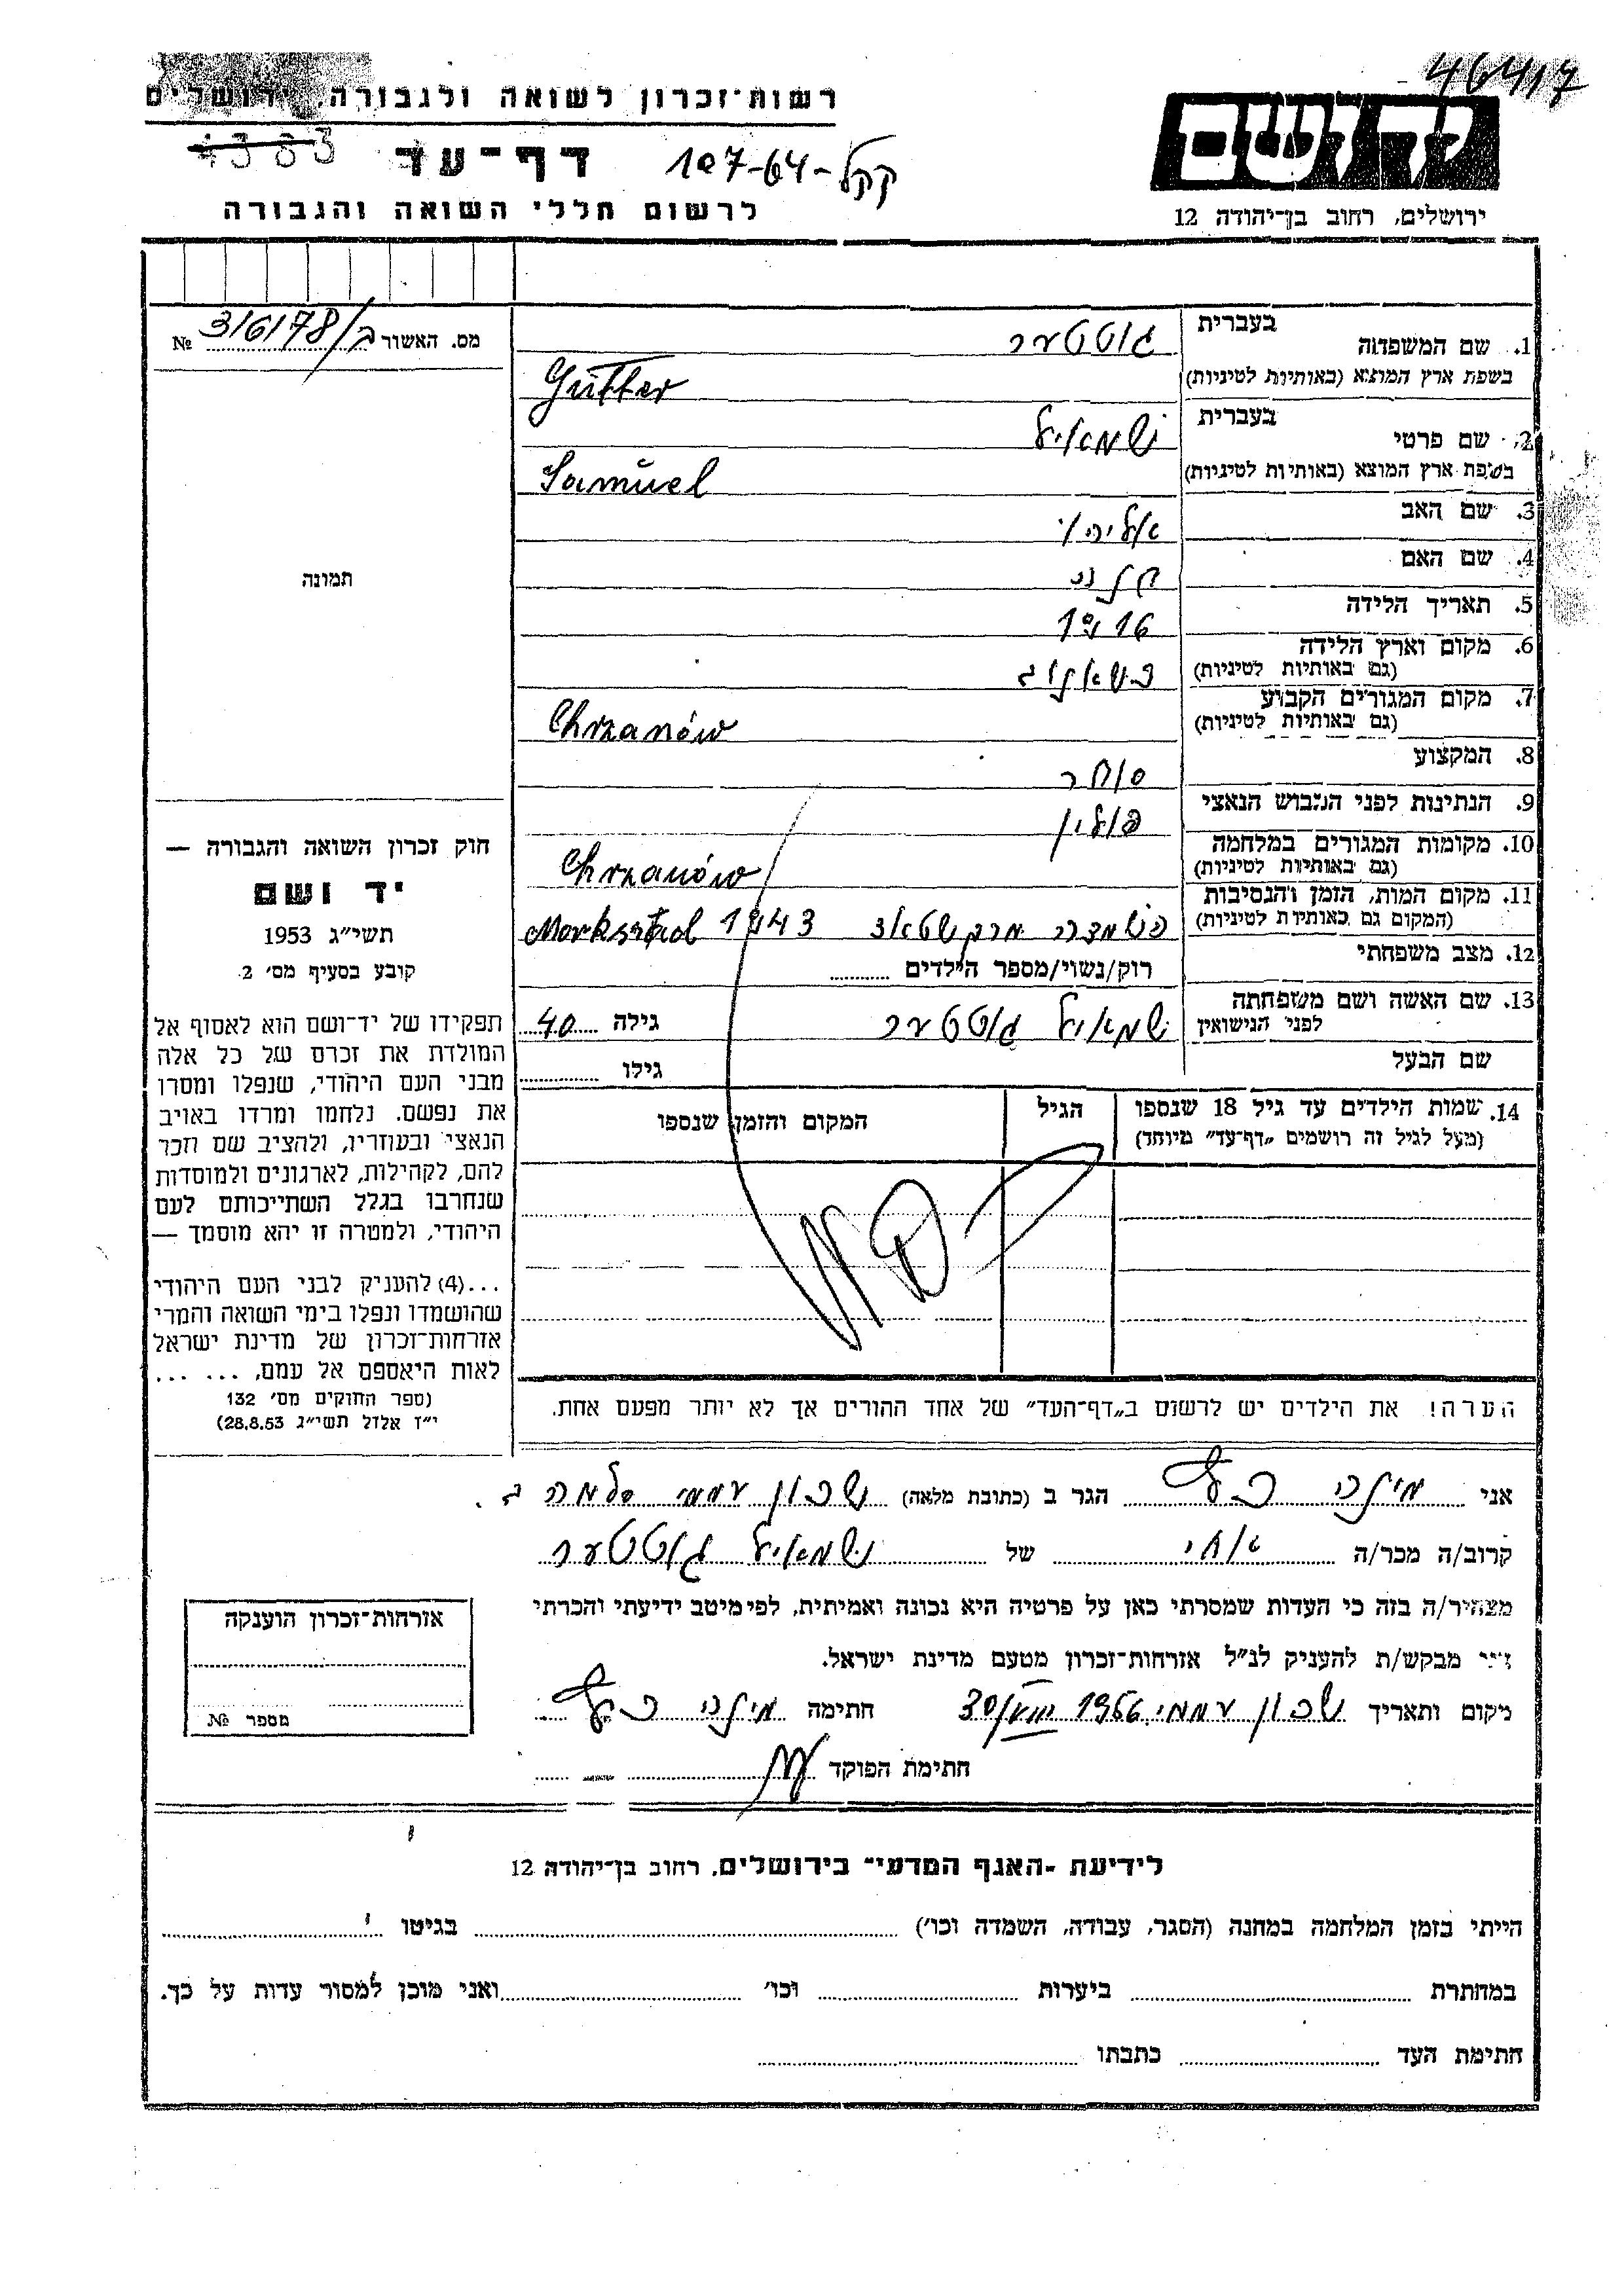 46417
רשות־זכרון לשואה ולגבורה, ירושלים
יד ושם
4383
דף־עד
קקל-107-64
לרשום חללי השואה והגבורה
ירושלים, רחוב בן־יהודה 12
מס. האשור ב/316178 №
1. שם המשפחה
בעברית
גוטטער
בשפת ארץ המוצא (באותיות לטיניות)
Gutter
2. שם פרטי
בעברית
שמאיל
בשפת ארץ המוצא (באותיות לטיניות)
Samuel
3. שם האב
אליהו
4. שם האם
5. תאריך הלידה
1916
6. מקום וארץ הלידה
(גם באותיות לטיניות)
7. מקום המגורים הקבוע
(גם באותיות לטיניות)
Chrzanów
8. המקצוע
סוחר
9. הנתינות לפני הכבוש הנאצי
פולין
10. מקומות המגורים במלחמה
(גם באותיות לטיניות)
Chrzanów
11. מקום המות, הזמן והנסיבות
(המקום גם באותיות לטיניות)
מרקשטאד 1943 Markstad
12. מצב משפחתי
רוק/נשוי/מספר הילדים
13. שם האשה ושם משפחתה
לפני הנישואין
שמאיל גוטטער
גילה 40
שם הבעל
גילו
14. שמות הילדים עד גיל 18 שנספו
(מעל לגיל זה רושמים „דף־עד” מיוחד)
הגיל
המקום והזמן שנספו
הערה! את הילדים יש לרשום ב„דף־העד” של אחד ההורים אך לא יותר מפעם אחת.
תמונה
חוק זכרון השואה והגבורה —
יד ושם
תשי״ג 1953
קובע בסעיף מס׳ 2
תפקידו של יד־ושם הוא לאסוף אל
המולדת את זכרם של כל אלה
מבני העם היהודי, שנפלו ומסרו
את נפשם. נלחמו ומרדו באויב
הנאצי ובעוזריו, ולהציב שם וזכר
להם, לקהילות, לארגונים ולמוסדות
שנחרבו בגלל השתייכותם לעם
היהודי, ולמטרה זו יהא מוסמך —
...(4) להעניק לבני העם היהודי
שהושמדו ונפלו בימי השואה והמרי
אזרחות־זכרון של מדינת ישראל
לאות היאספם אל עמם, ... ...
(ספר החוקים מס׳ 132
י״ז אלול תשי״ג 28.8.53)
אני הגר ב (כתובת מלאה) שכון עממי סלמה ג.
קרוב/ה מכר/ה אחי של שמאיל גוטטער
מצהיר/ה בזה כי העדות שמסרתי כאן על פרטיה היא נכונה ואמיתית, לפי מיטב ידיעתי והכרתי
אני מבקש/ת להעניק לנ״ל אזרחות־זכרון מטעם מדינת ישראל.
מקום ותאריך שכון עממי 1956 30 חתימה
חתימת הפוקד
אזרחות־זכרון הוענקה
מספר №
לידיעת -האגף המדעי״ בירושלים, רחוב בן־יהודה 12
הייתי בזמן המלחמה במחנה (הסגר, עבודה, השמדה וכו׳) בגיטו
במחתרת ביערות וכו׳ ואני מוכן למסור עדות על כך.
חתימת העד כתבתו